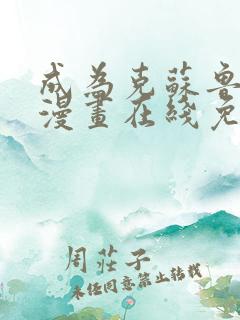 成為克蘇魯
漫畫在綫免
周莊子
未經同意禁止轉載